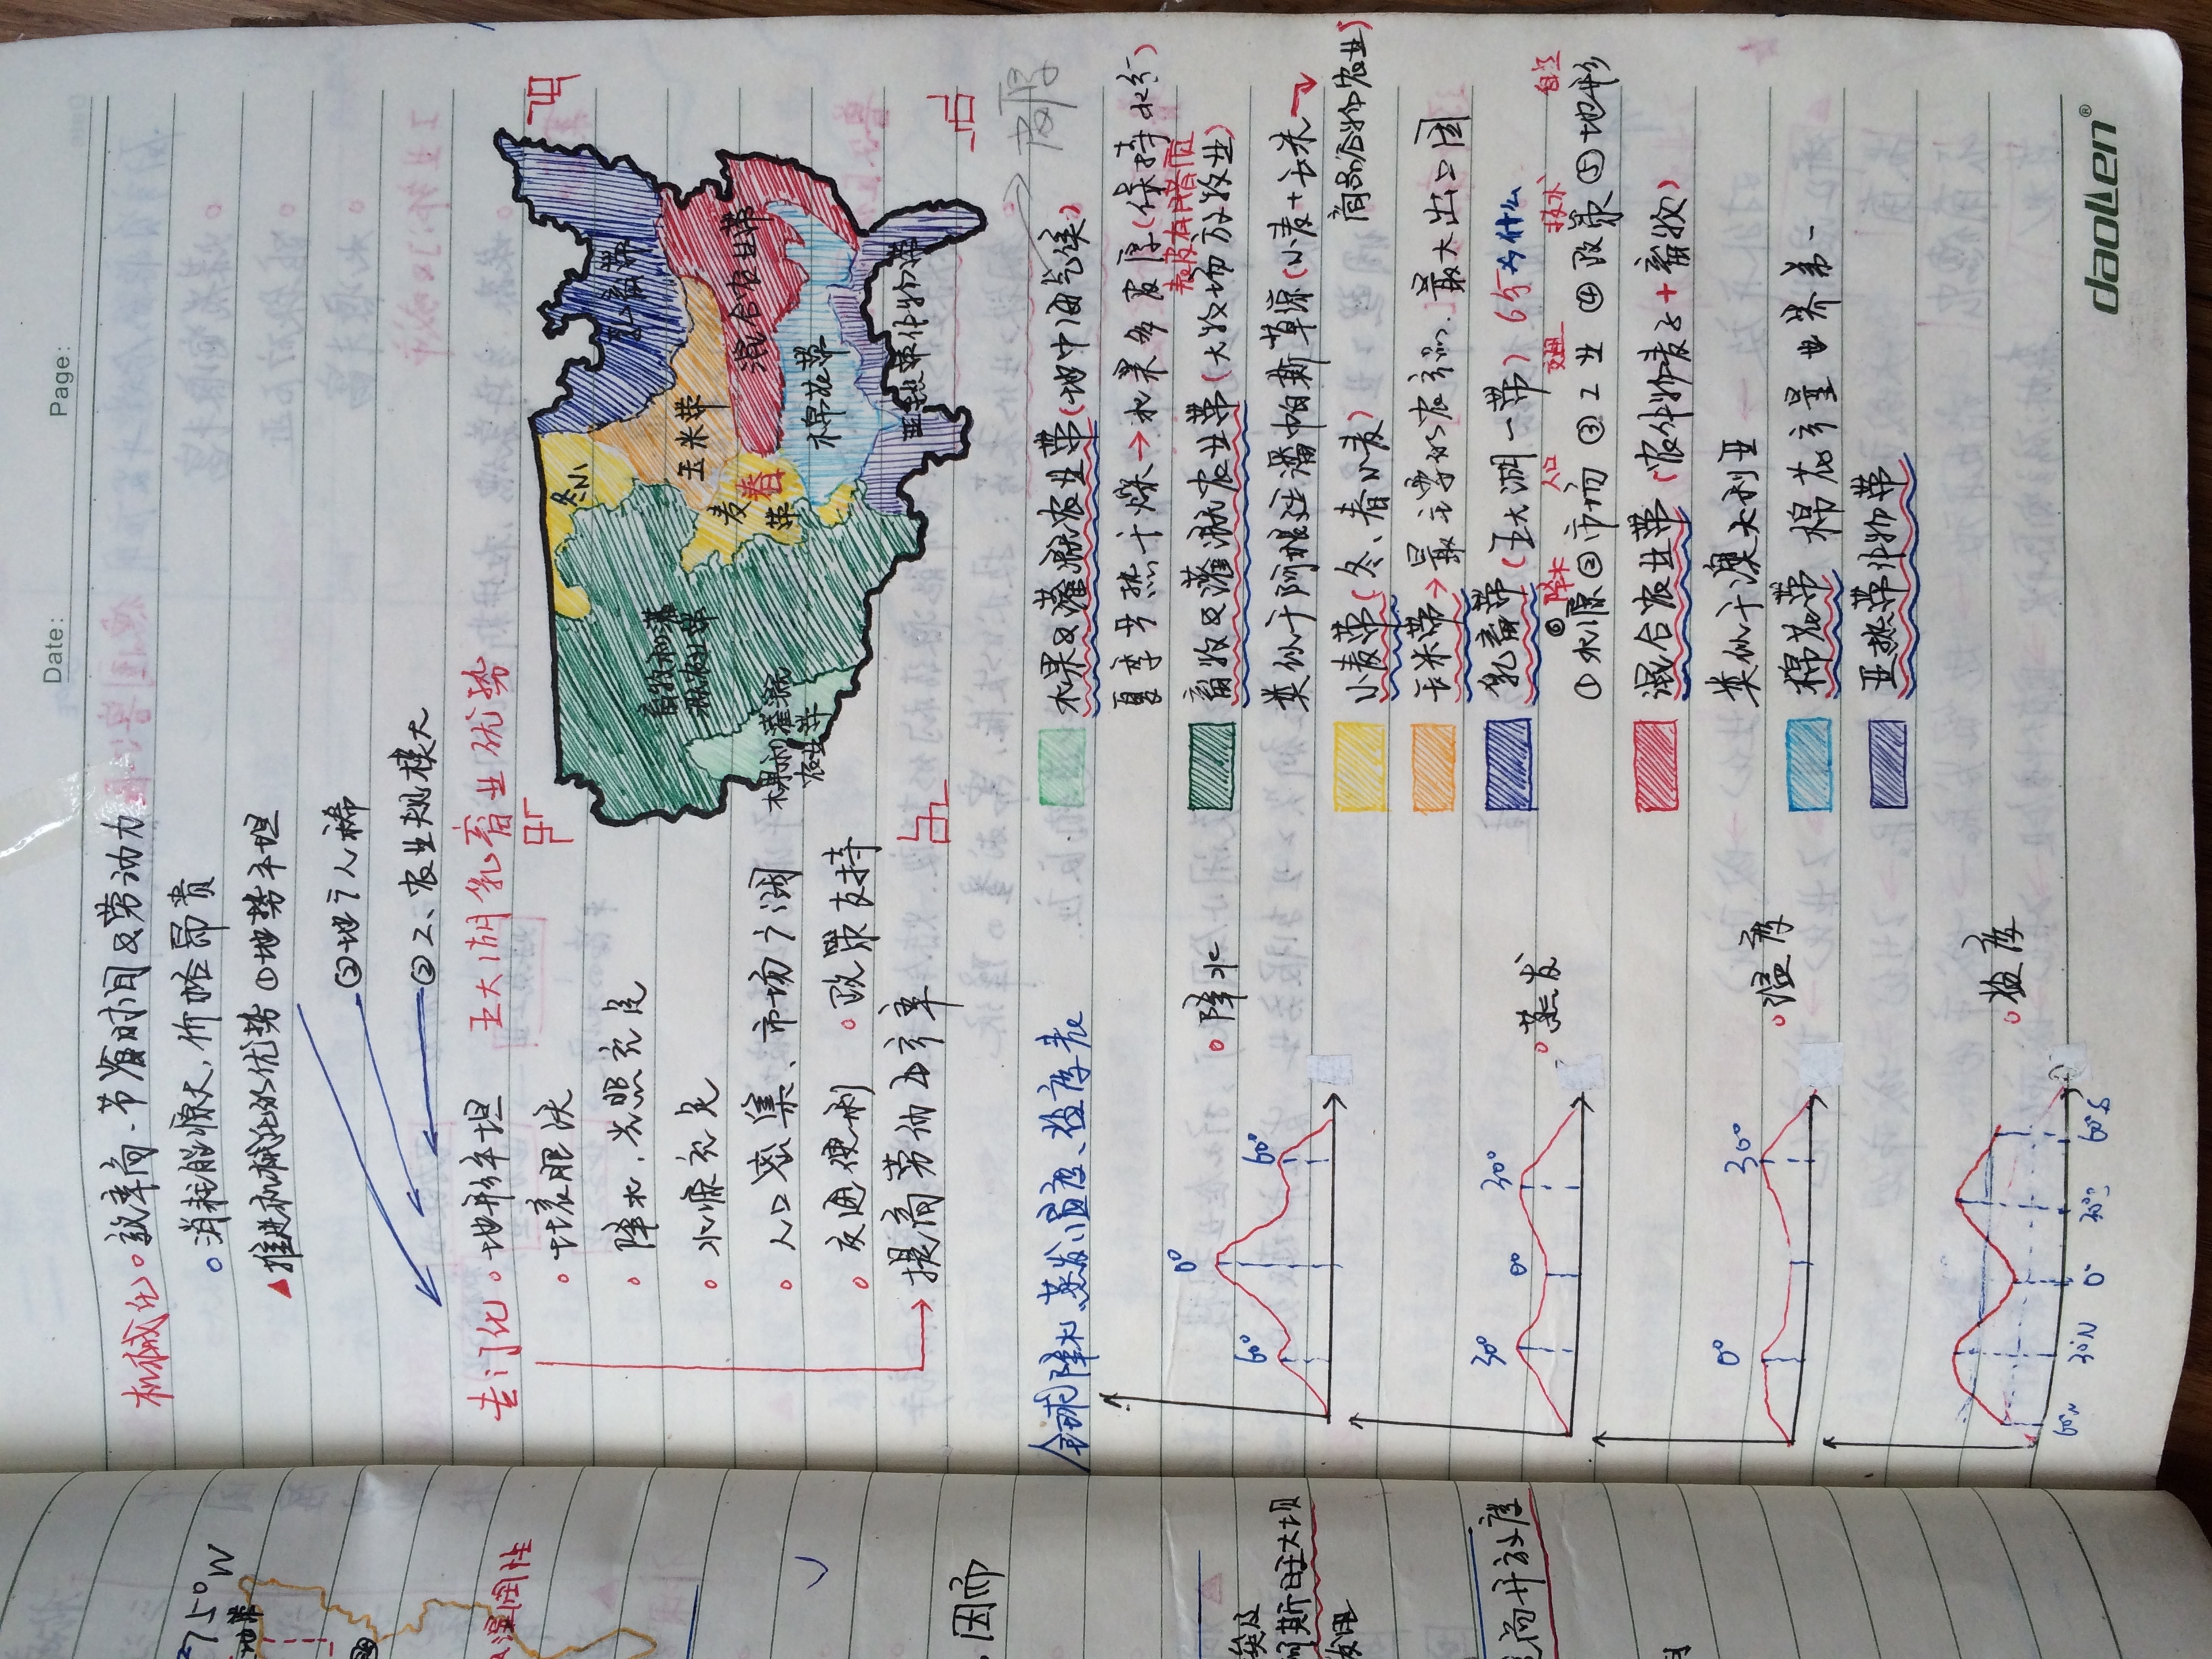 Date: Page:
机械化 效率高、节省时间&劳动力
消耗能源大，价格昂贵
推进机械化的优势 ①地势平坦
②地广人稀
③工、农业规模大
专门化 地形平坦 五大湖乳畜业优势
土壤肥沃
降水、光照充足
水源充足
人口密集、市场广阔
交通便利 政策支持
提高劳动生产率
冬小
乳畜带
畜牧和灌溉农业带
玉米带
麦带
春
混合农业带
水果和灌溉农业带
棉花带
亚热带作物带
75°W
地带
湿润性
因而
埃及
阿斯旺大坝
发电
高开放度
全球降水、蒸发、温度、盐度表
60° 0° 60°
降水
30° 0° 30°
蒸发
0° 30°
温度
盐度
60°N 30°N 0° 30°S 60°S
水果&灌溉农业带(地中海气候) 皮厚
夏季炎热干燥→水果多皮厚(保持水分)
表皮有腊质
畜牧&灌溉农业带(大牧场放牧业)
类似于阿根廷潘帕斯草原(小麦+玉米→
商品谷物农业)
小麦带(冬、春小麦)
玉米带→最主要的农产品、最大出口国
乳畜带(五大湖一带) 6分 为什么
⑥降水 人口 交通 技术
①水源②市场 ③工业 ④政策 ⑤地形
混合农业带 (农作物麦子+畜牧)
类似于澳大利亚
棉花带 棉花产量世界第一
亚热带作物带
daolen®